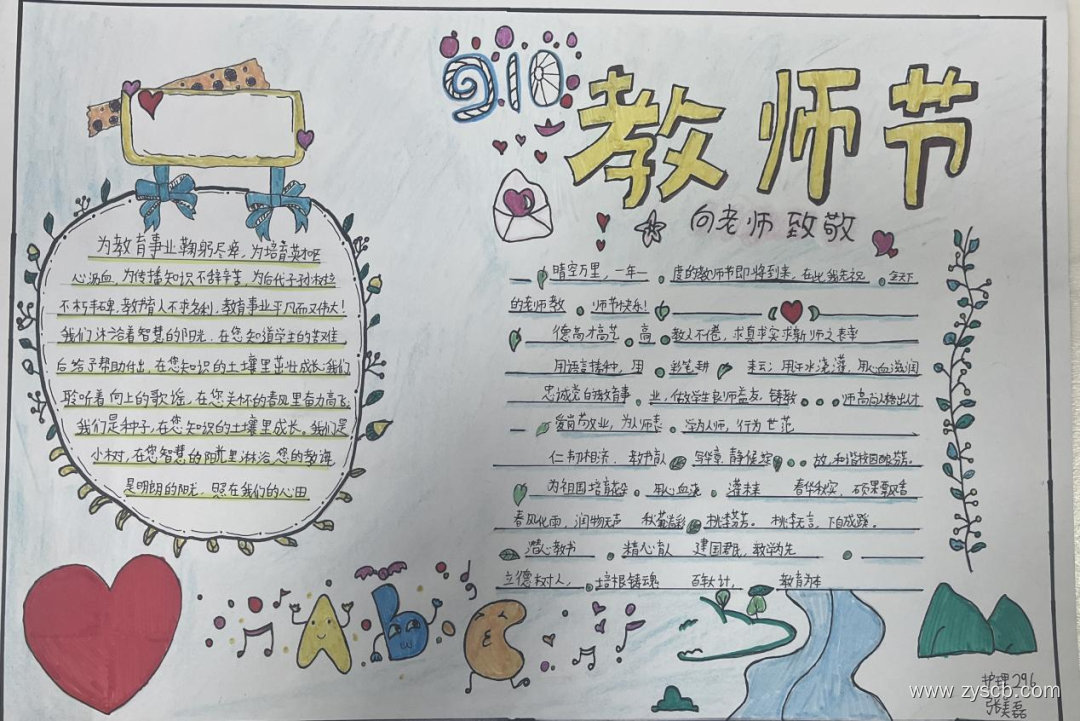 910
教师节
向老师致敬
为教育事业鞠躬尽瘁,为培育英才呕
心沥血,为传播知识不辞辛苦,为后代子孙树立
不朽丰碑,教书育人不求名利,教育事业平凡而又伟大!
我们沐浴着智慧的阳光,在您知道学生的苦难
后给予帮助付出,在您知识的土壤里茁壮成长;我们
聆听着向上的歌谣,在您关怀的春风里奋力高飞;
我们是种子,在您知识的土壤里成长。我们是
小树,在您智慧的阳光里淋浴 您的教诲
是明朗的阳光,照在我们的心田
晴空万里,一年一度的教师节即将到来,在此我先祝全天下
的老师教师节快乐!
德高才高艺高 教人不倦,求真求实求新 师之表率
用语言播种,用彩笔耕耘,用汗水浇灌,用心血滋润
忠诚党的教育事业,做学生良师益友,铸教 师高尚人格出人才
爱岗敬业,为人师表 学为人师,行为世范
仁韧相济,教书育人 写华章 静候绽放,和谐校园酿芬芳。
为祖国培育花朵 用心血浇灌未来 春华秋实,硕果飘香
春风化雨,润物无声 秋菊溢彩 桃李芬芳。桃李无言,下自成蹊。
潜心教书 精心育人 建国君民,教学为先
立德树人,培根铸魂 百年大计,教育为本
ABC
护理296
www.zyscb.com